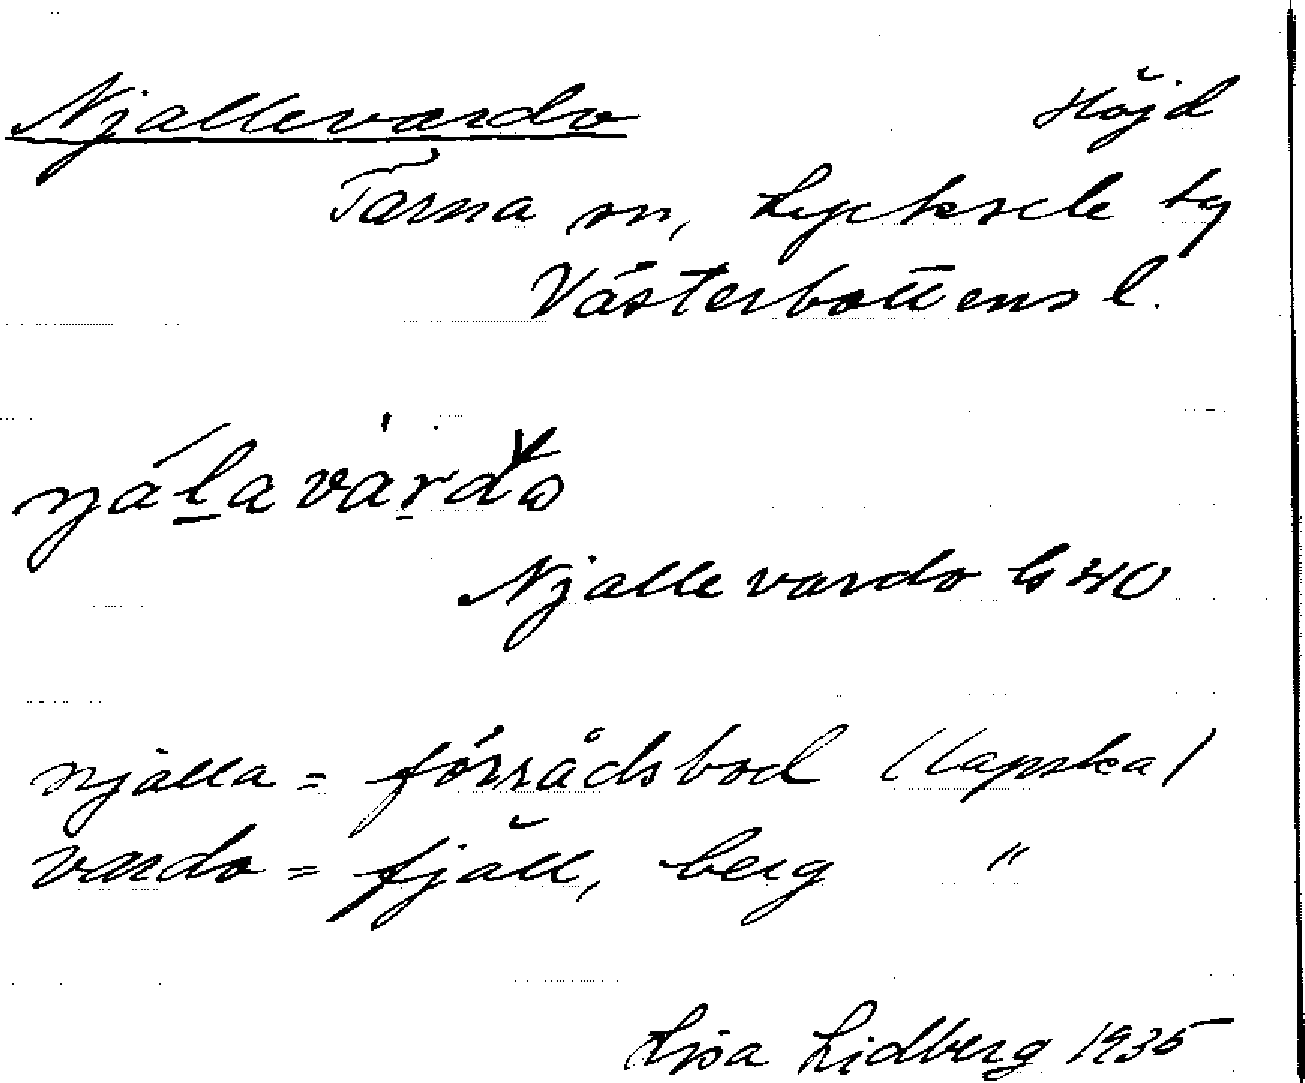 Njallevardo Höjd
Tärna sn, Lycksele tg
Västerbottens l.
Njallevardo G 40
njalla = förrådsbod (lapska)
vardo = fjäll, berg "
Lisa Lidberg 1935